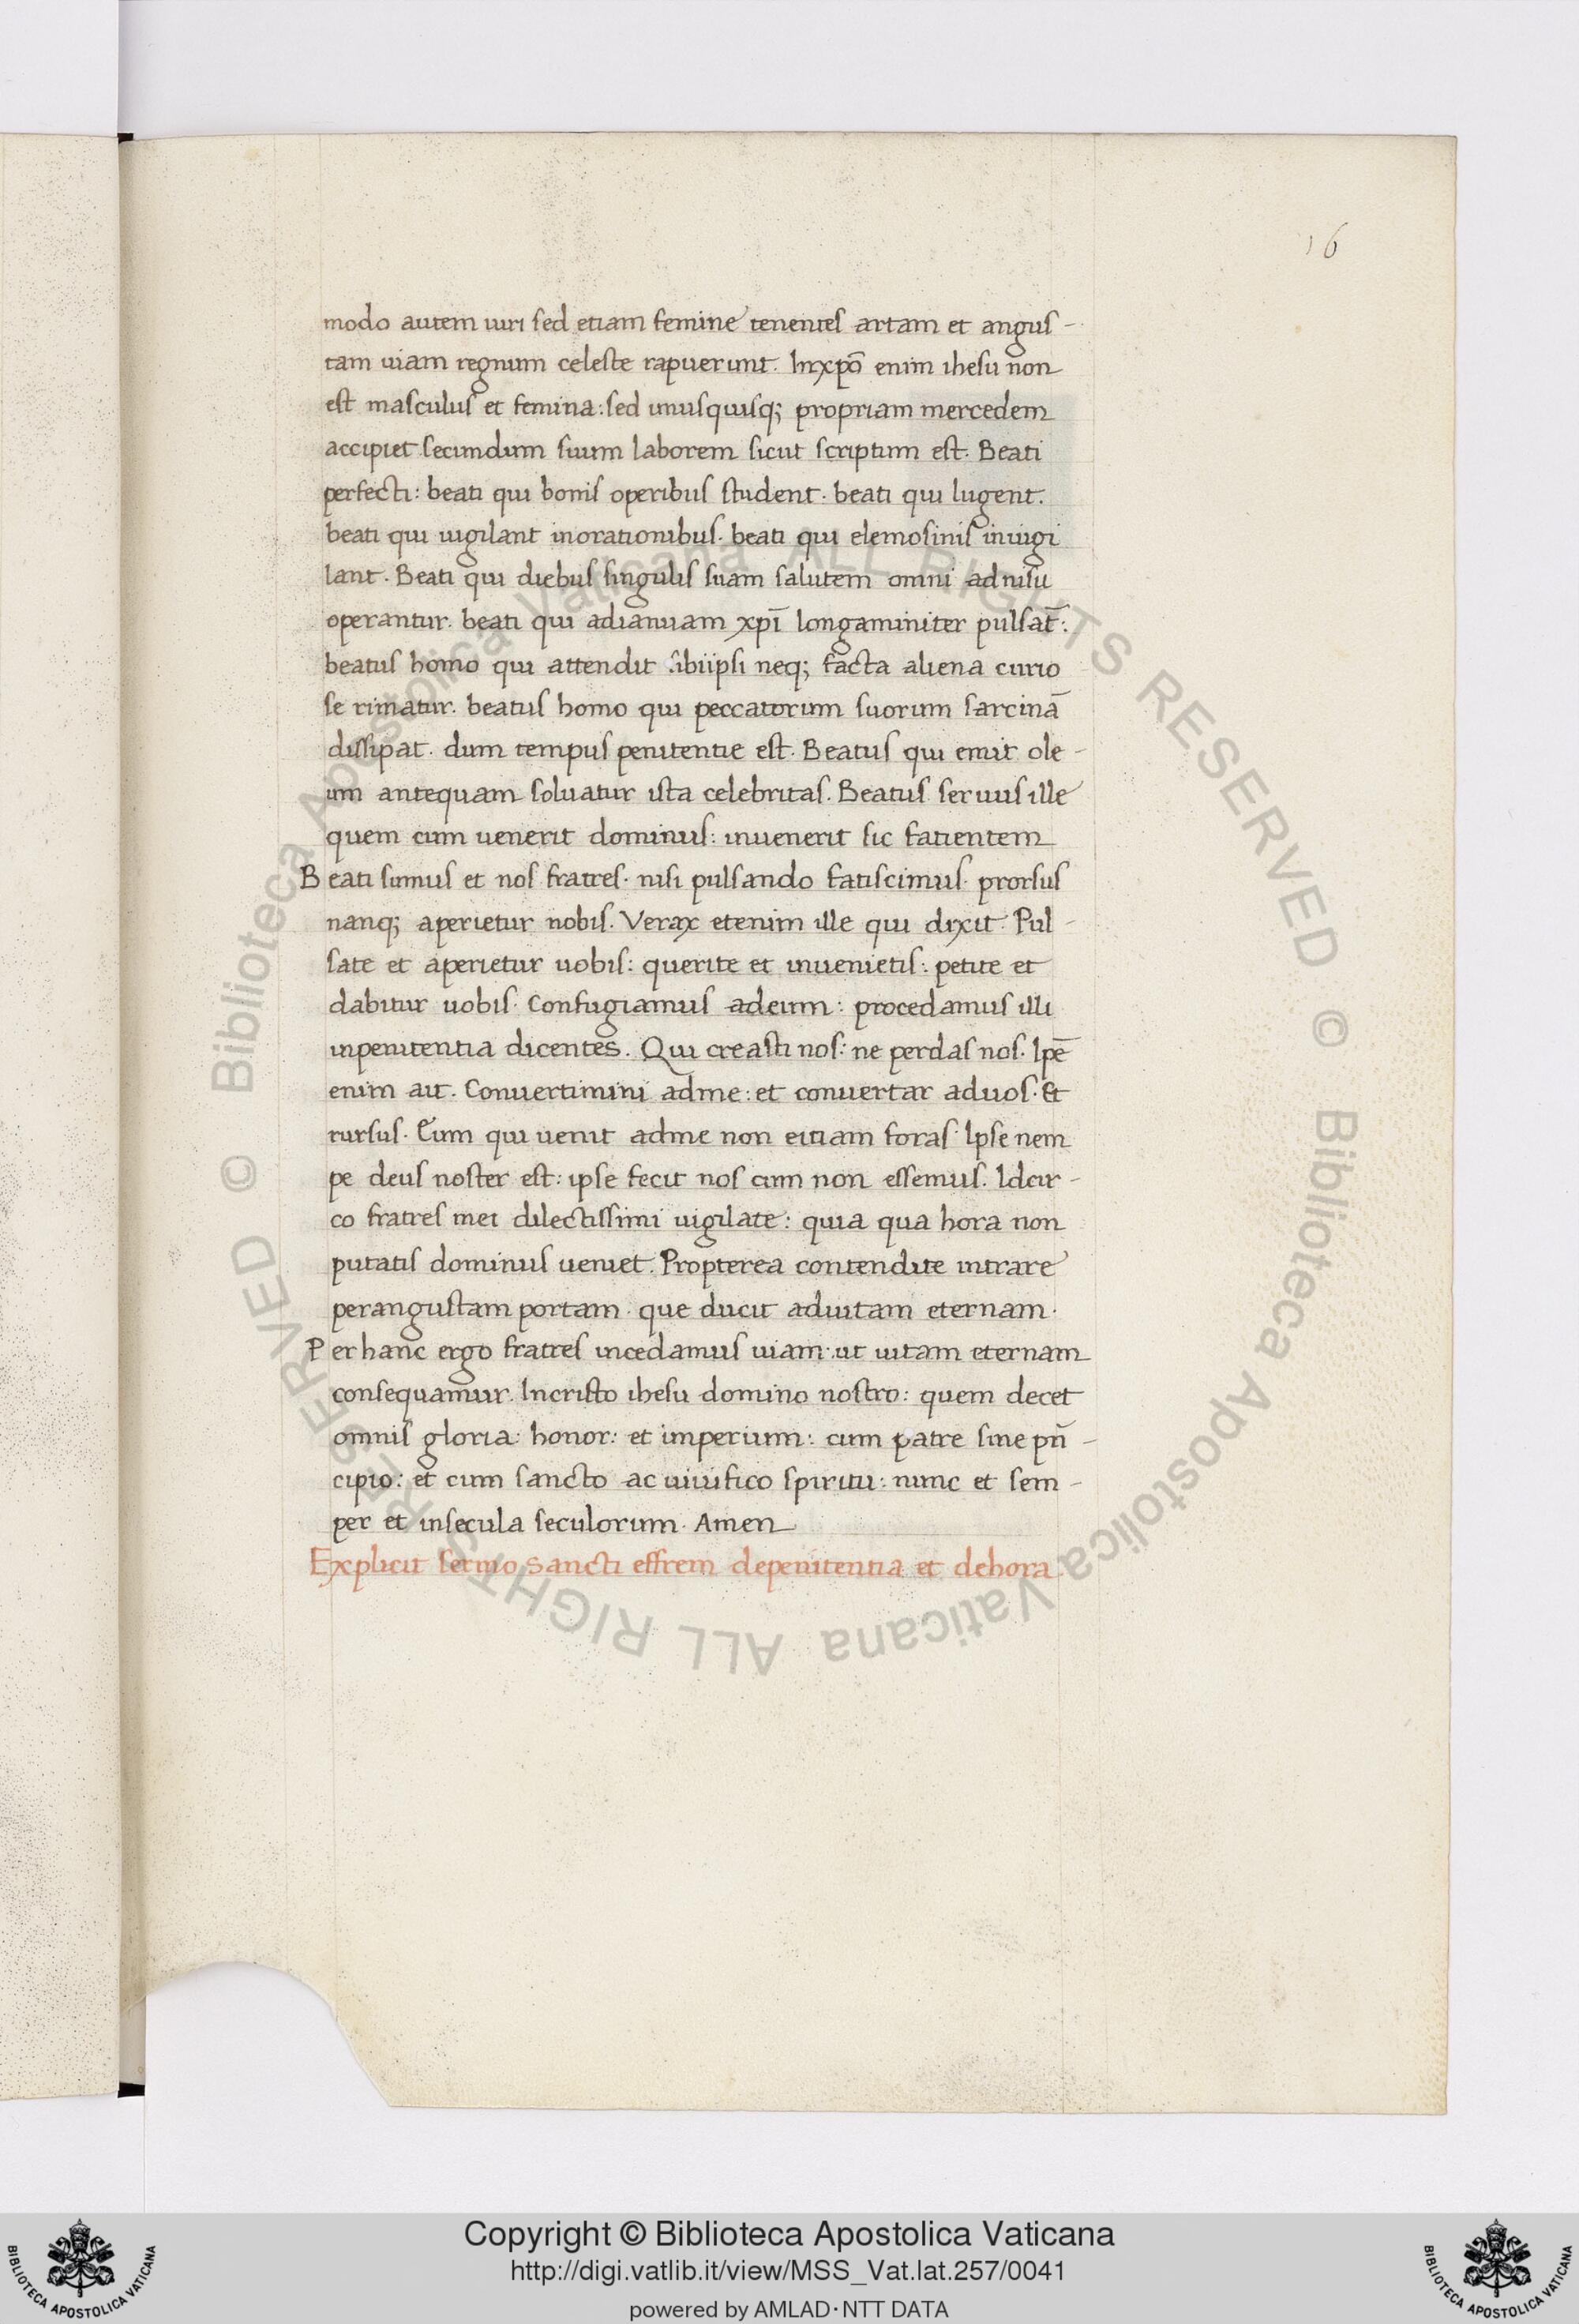 16
modo autem uiri sed etiam femine tenentes artam et angus-
tam uiam regnum celeste rapuerunt. Inxpō enim ihesu non
est masculus et femina: sed unusquisq; propriam mercedem
accipiet secundum suum laborem sicut scriptum est. Beati
perfecti: beati qui bonis operibus student. beati qui lugent.
beati qui uigilant inorationibus. beati qui elemosinis inuigi
lant. Beati qui diebus singulis suam salutem omni adnisu
operantur. beati qui adianuam xpī longaminiter pulsat̄:
beatus homo qui attendit sibiipsi neq; facta aliena curio
se rimatur. beatus homo qui peccatorum suorum sarcinā
dissipat. dum tempus penitentie est. Beatus qui emit ole-
um antequam soluatur ista celebritas. Beatus seruus ille
quem cum uenerit dominus: inuenerit sic fatientem
Beati sumus et nos fratres. nisi pulsando fatiscimus. prorsus
nanq; aperietur nobis. Verax etenim ille qui dixit. Pul-
sate et aperietur uobis: querite et inuenietis: petite et
dabitur uobis. Confugiamus adeum: procedamus illi
inpenitentia dicentes. Qui creasti nos: ne perdas nos. Ipē
enim ait. Conuertimini adme: et conuertar aduos. Et
rursus. Eum qui uenit adme non eitiam foras. Ipse nem
pe deus noster est: ipse fecit nos cum non essemus. Idcir-
co fratres mei dilectissimi uigilate: quia qua hora non
putatis dominus ueniet. Propterea contendite intrare
perangustam portam. que ducit aduitam eternam.
Perhanc ergo fratres incedamus uiam. ut uitam eternam
consequamur. Incristo ihesu domino nostro: quem decet
omnis gloria: honor: et imperium: cum patre sine pn̄-
cipio: et cum sancto ac uiuifico spiritu: nunc et sem-
per et insecula seculorum. Amen
Explicit sermo sancti effrem depenitentia et dehora.
© Biblioteca Apostolica Vaticana ALL RIGHTS RESERVED © Biblioteca Apostolica Vaticana ALL RIGHTS RESERVED
Copyright © Biblioteca Apostolica Vaticana
http://digi.vatlib.it/view/MSS_Vat.lat.257/0041
powered by AMLAD·NTT DATA
BIBLIOTECA APOSTOLICA VATICANA
BIBLIOTECA APOSTOLICA VATICANA